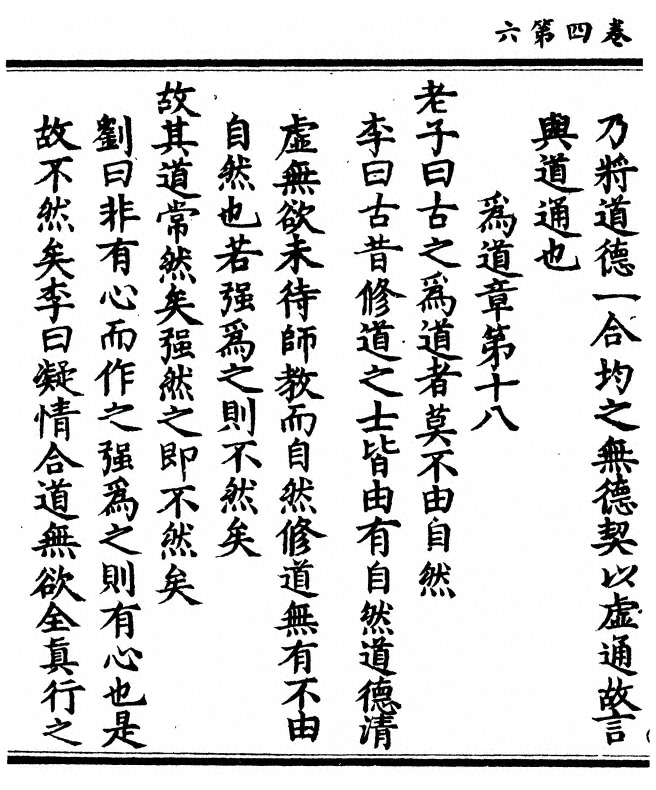 卷四第六
乃將道德一合均之無德契以虛通故言
與道通也
爲道章第十八
老子曰古之爲道者莫不由自然
李曰古昔修道之士皆由有自然道德清
虛無欲未待師教而自然修道無有不由
自然也若强爲之則不然矣
故其道常然矣强然之即不然矣
劉曰非有心而作之强爲之則有心也是
故不然矣李曰凝情合道無欲全真行之